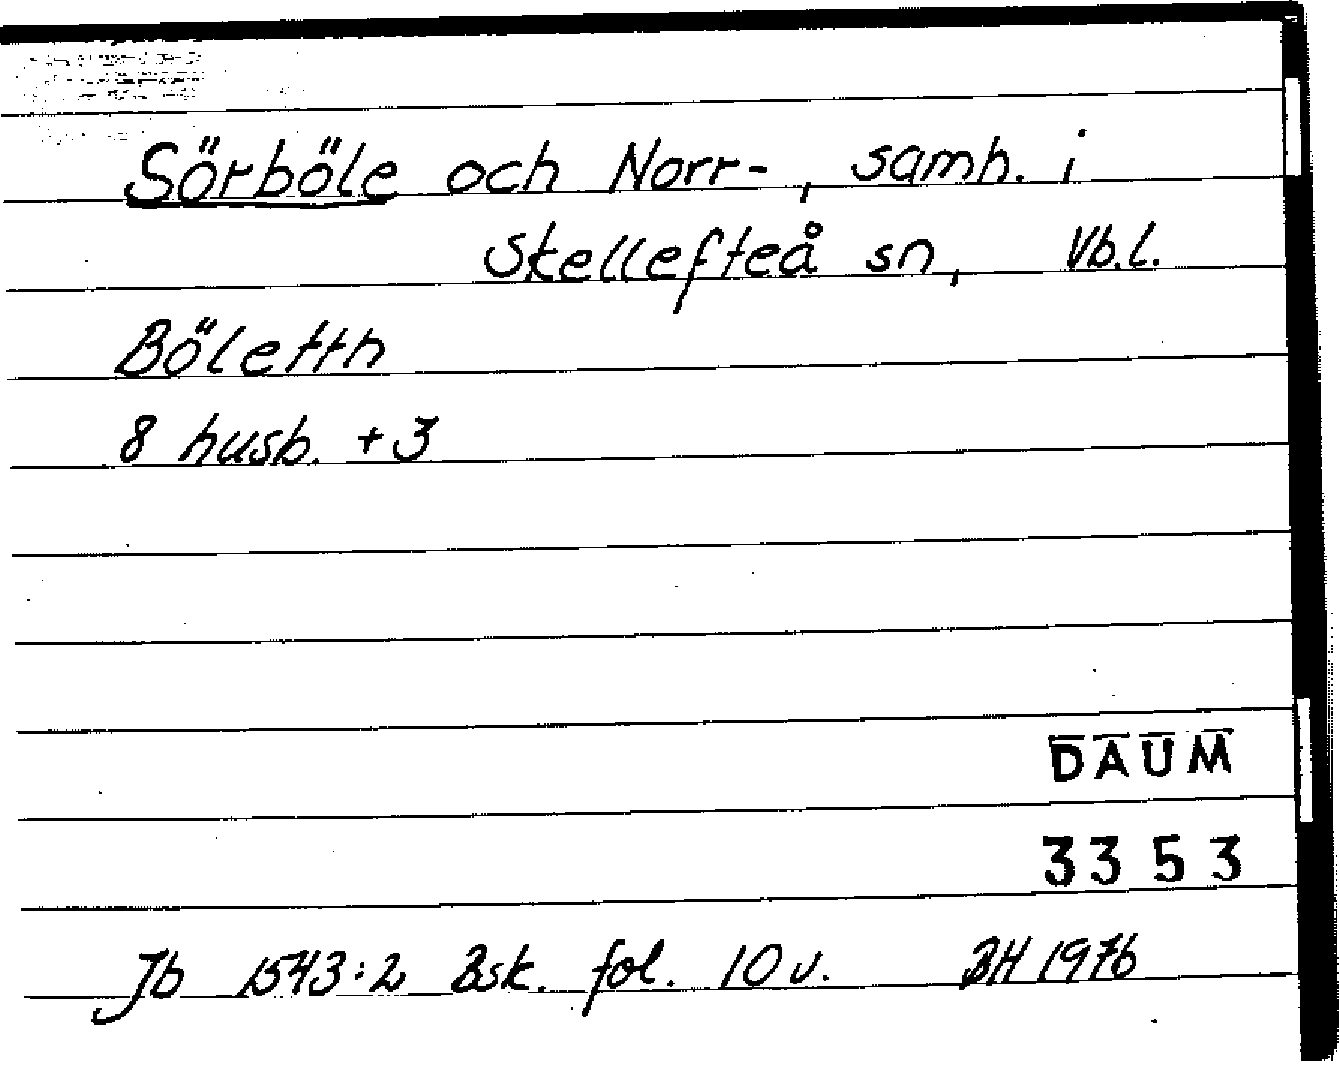 Sörböle och Norr-, samh. i
Skellefteå sn, Vb.l.
Böletth
8 husb. +3
DAUM
3353
Jb 1543:2 Bsk. fol. 10 v. BH 1976